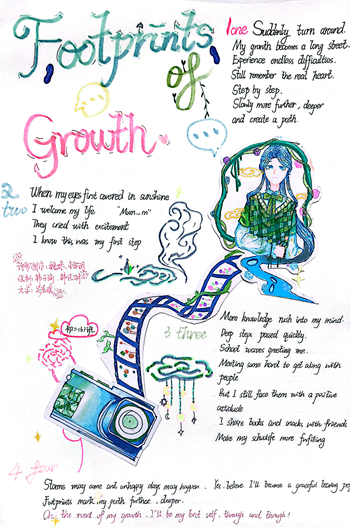 Footprints
of
Growth
1one Suddenly turn around.
My growth becomes a long street.
Experience endless difficulties.
Still remember the real heart.
Step by step.
Slowly more further, deeper
and create a path.
2 two
When my eyes first covered in sunshine
I welcome my life "Mum...m"
They cried with excitement
I know this was my first step
3 three
More knowledge rush into my mind.
Deep step passed quickly.
School waves greeting me.
Meeting some hard to get along with
people
But I still face them with a positive
I share books and snacks with friends
Make my school life more
4 four
Storms may come and unhappy days may happen. Yet, believe I'll become a graceful
Footprints mark my path further, deeper.
On the road of my growth, I'll be my best self, through and through!